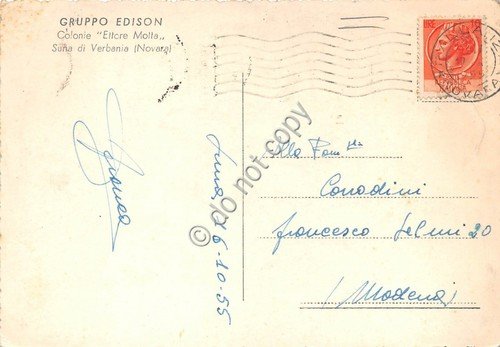 GRUPPO EDISON
Colonie "Ettore Motta„
Suna di Verbania (Novara)
Suna 16-10-55
Franca
Alla Fam lla
Corradini
Francesco Selmi 20
(Modena)
NOVARA
© do not copy